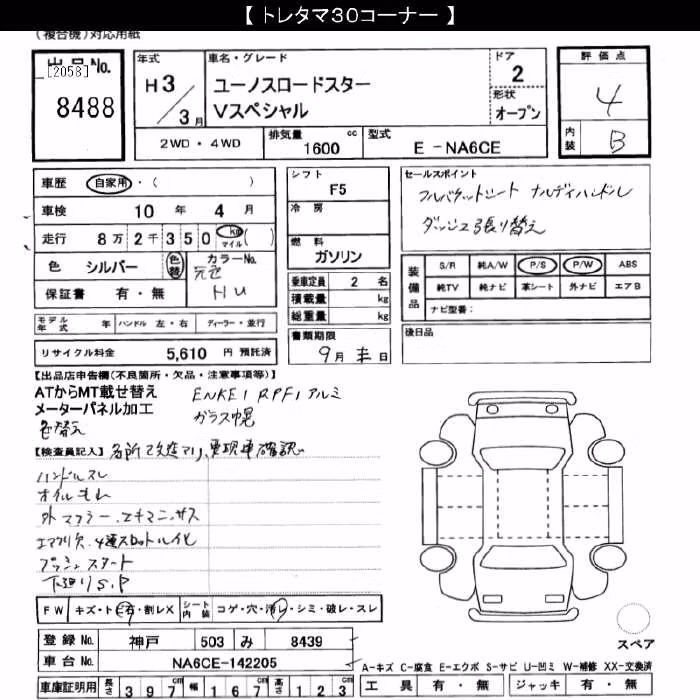 【 トレタマ30コーナー 】
(複合機)対応用紙
出品No.
[2058]
8488
年式
H3/3月
車名・グレード
ユーノスロードスター
Vスペシャル
ドア
2
形状
オープン
評価点
4
内装
B
2WD・4WD
排気量 1600 cc
型式 E-NA6CE
車歴 自家用・( )
車検 10年 4月
走行 8万2千350 km マイル ( )
色 シルバー 色替
カラーNo.
元色
HU
保証書 有・無
シフト
F5
冷房
燃料
ガソリン
乗車定員 2 名
積載量 kg
総重量 kg
セールスポイント
フルバケットシート ナルディハンドル
ダッシュ張り替え
装備品
S/R 純A/W P/S P/W ABS
純TV 純ナビ 革シート 外ナビ エアB
ナビ型番:
後日品
モデル年式 年 ハンドル 左・右 ディーラー・並行
リサイクル料金 5,610 円 預託済
書類期限
9月 末日
【出品店申告欄(不良箇所・欠品・注意事項等)】
ATからMT載せ替え
メーターパネル加工
色替え
ENKEI RPF1アルミ
ガラス幌
【検査員記入】各所で改造アリ、要現車確認
ハンドルスレ
オイルもれ
外マフラー、エキマニ、サス
エアフロ欠、4連スロットル化
プッシュスタート
下廻りS、P
FW キズ・ト・有・割レX
シート内装 コゲ・穴・汚レ・シミ・破レ・スレ
登録No. 神戸 503 み 8439
車台No. NA6CE-142205
車庫証明用 長さ 397 cm 幅 167 cm 高さ 123 cm
スペア
A-キズ C-腐食 E-エクボ S-サビ U-凹ミ W-補修 XX-交換済
工具 有・無 ジャッキ 有・無